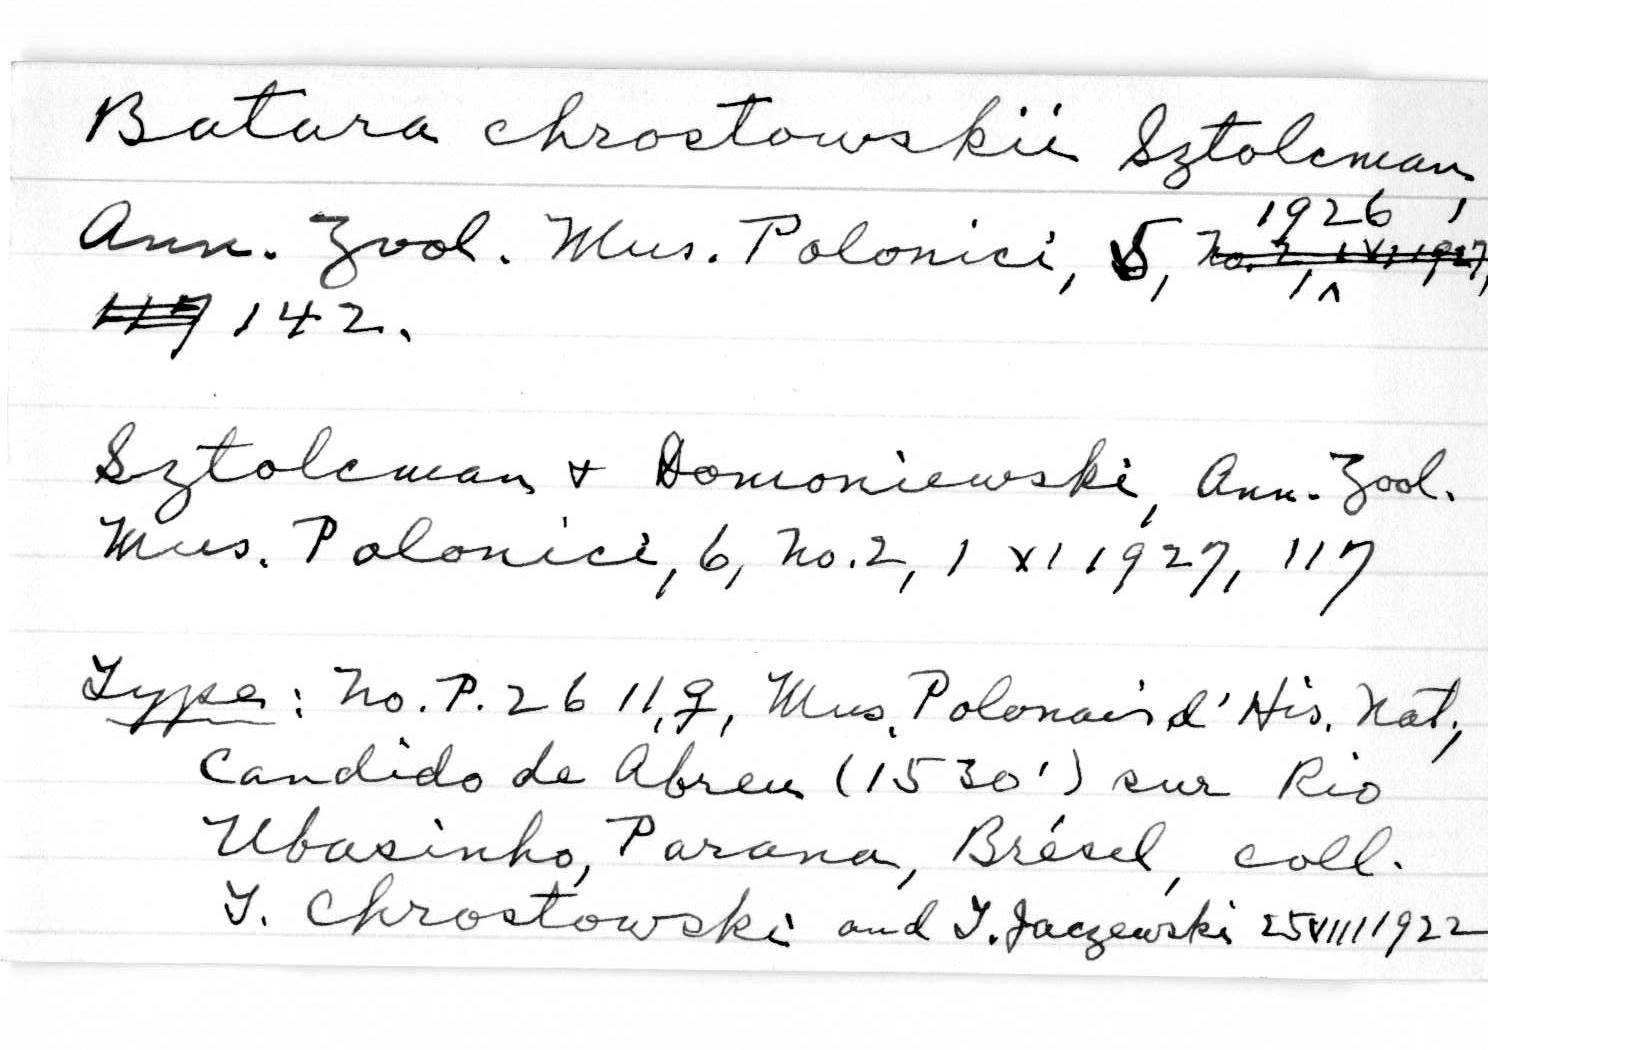 Batara chrostowskii Sztolcman
Ann. Zool. Mus. Polonici, 5, 1926,
No. 2, 1 XI 1927,
117 142.
Sztolcman + Domoniewski, Ann. Zool.
Mus. Polonici, 6, No. 2, 1 XI 1927, 117
Type: No. P. 26 11, ♀, Mus. Polonais d'His. Nat.,
Candido de Abreu (1530') sur Rio
Ubasinho, Parana, Brésil, coll.
T. Chrostowski and T. Jaczewski 25 VIII 1922